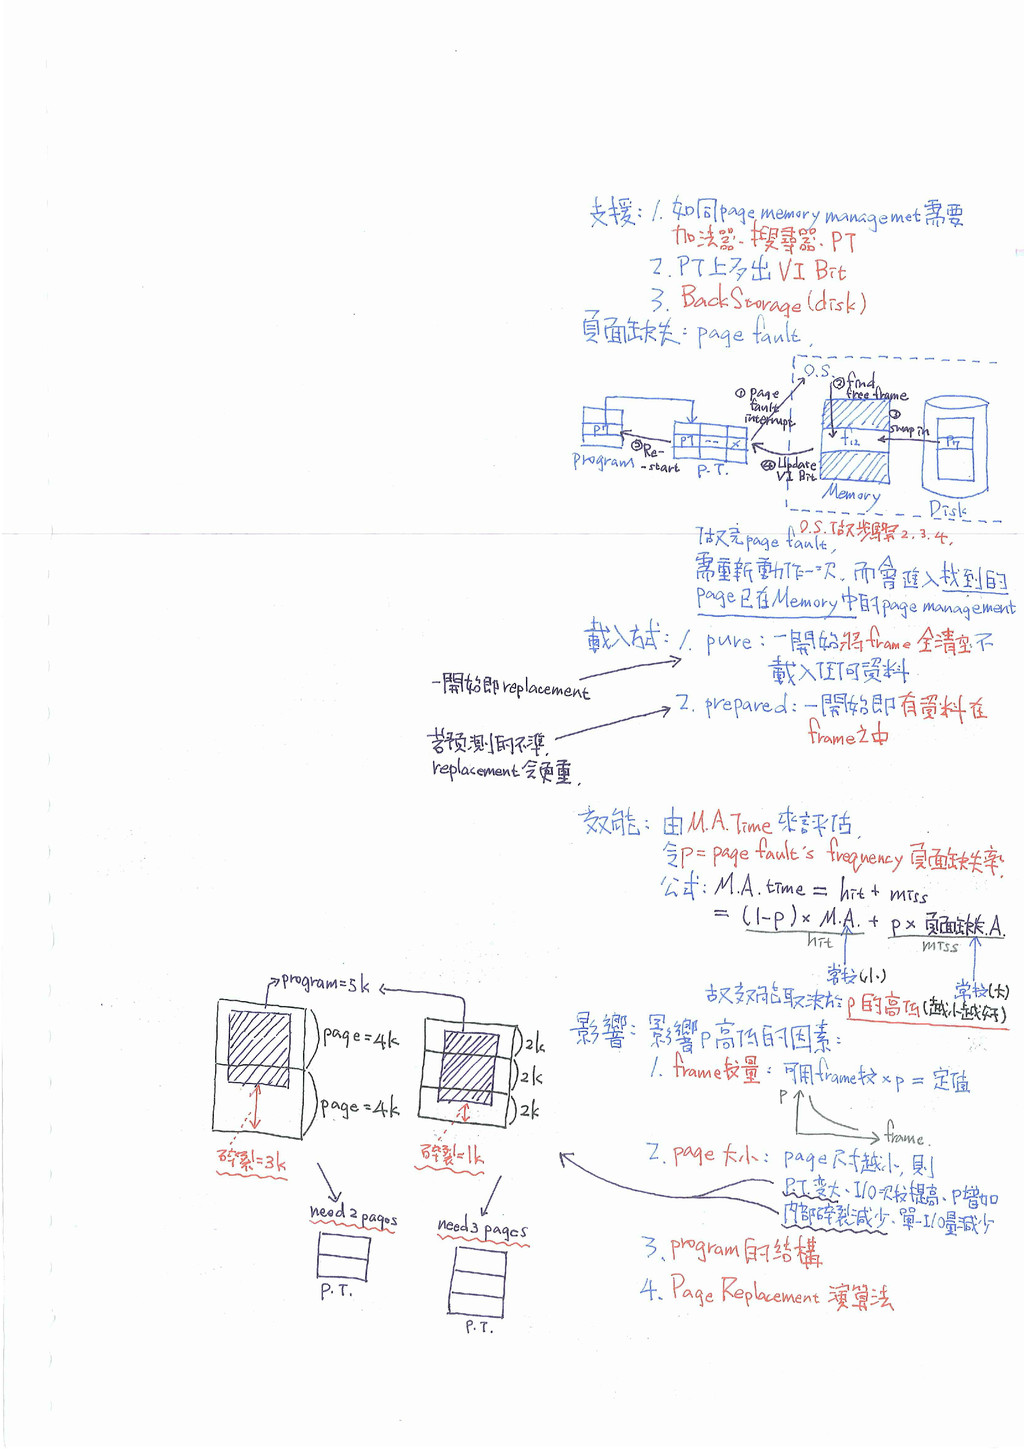 支援：1. 如同page memory managemet需要
加法器、搜尋器、PT
2. PT上多出VI Bit
3. BackStorage(disk)
頁面缺失：page fault,
O.S.
① page fault interrupt
② find free frame
③ swap in
④ Update VI Bit
⑤ Re-start
P7
program
P7 -- x
P.T.
f12
Memory
P7
Disk
O.S.做步驟2.3.4,
做完page fault,
需重新動作一次、而會進入找到的
page已在Memory中的page management
載入方式：1. pure：一開始將frame全清空不
載入任何資料
一開始即replacement
2. prepared：一開始即有資料在
frame之中
若預測的不準,
replacement會更重.
效能：由M.A.Time來評估,
令p=page fault's frequency頁面缺失率,
公式：M.A.time = hit + miss
= (1-p) × M.A. + p × 頁面缺失.A.
hit miss
常數(小)
常數(大)
故效能取決於p的高低(越小越好)
影響：影響p高低的因素：
1. frame數量：可用frame數×p = 定值
P
frame.
2. page大小：page尺寸越小,則
P.T.变大、I/O次數提高、P增加
內部碎裂減少、單一I/O量減少
3. program的結構
4. Page Replacement 演算法
program=5k
page=4k
page=4k
碎裂=3k
need 2 pages
P.T.
2k
2k
2k
碎裂=1k
need 3 pages
P.T.